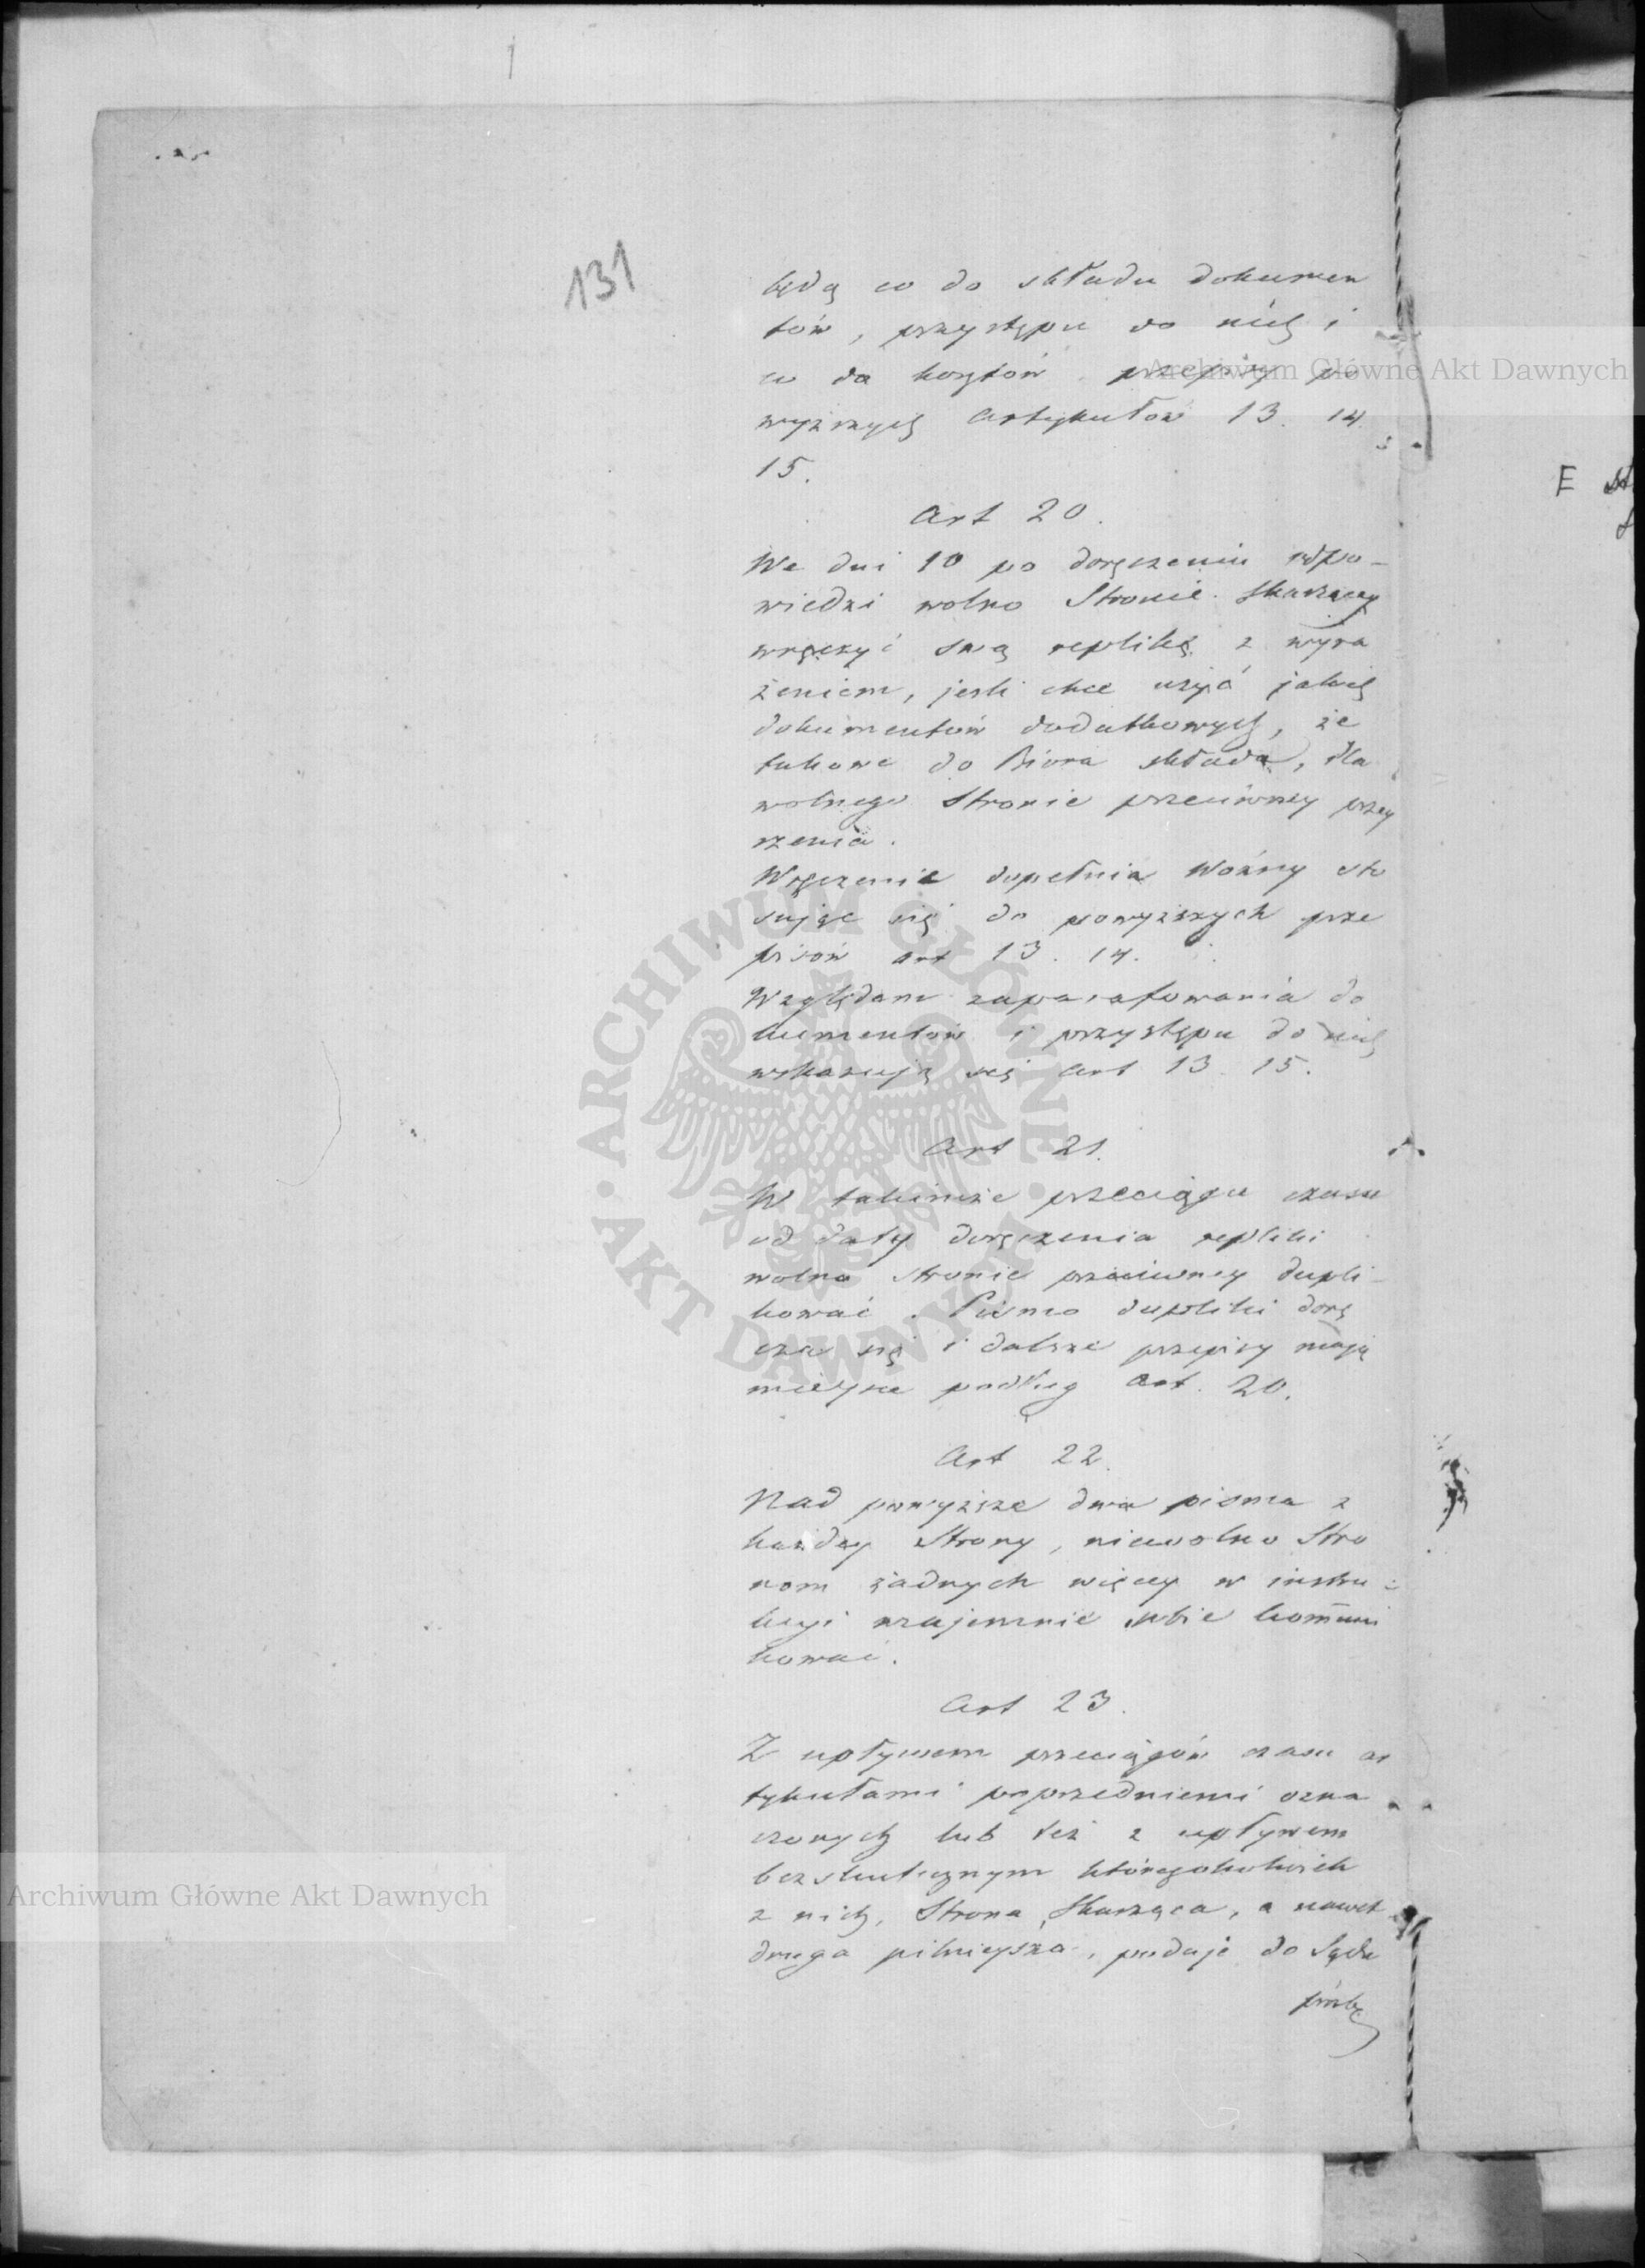 131
będą co do składu dokumen
tów, przystępu do nich i
co do kosztów przepisy po
wyższych Artykułów 13. 14.
15.
Art 20.
We dni 10 po doręczeniu odpo-
wiedzi wolno Stronie Skarżącey
wręczyć swą replikę z wyra
żeniem, jeśli chce użyć jakich
dokumentów dodatkowych, że
takowe do Biora składa, dla
wolnego Stronie przeciwney przey
rzenia.
Wręczenie dopełnia Woźny sto
sując się do powyższych prze
pisów art 13. 14.
Względem zaparafowania do
kumentów i przystępu do nich
wskazują się art 13. 15.
Art 21.
W takimże przeciągu czasu
od daty doręczenia repliki
wolno stronie przeciwney dupli-
kować. Pismo dupliki dorę
cza się i dalsze przepisy mają
mieysce podług Art. 20.
Art 22.
Nad powyższe dwa pisma z
każdey Strony, niewolno Stro
nom żadnych więcey w instru-
kcyi wzajemnie sobie kom̄uni
kować.
Art 23.
Z upływem przeciągów czasu ar
tykułami poprzedniemi ozna
czonych lub też z upływem
bezskutecznym któregokolwiek
z nich, Strona Skarżąca, a nawet
druga pilnieysza, podaje do Sądu
prośbę
E
Archiwum Główne Akt Dawnych
ARCHIWUM GŁÓWNE AKT DAWNYCH
Archiwum Główne Akt Dawnych